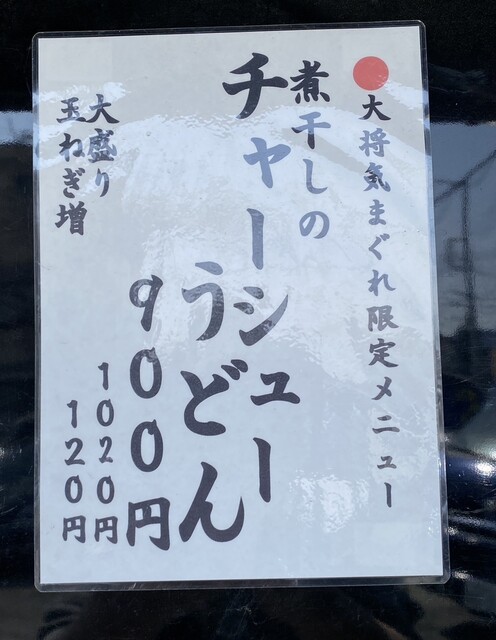 大将気まぐれ限定メニュー
煮干しの
チャーシュー
うどん
900円
大盛り 1020円
玉ねぎ増 120円